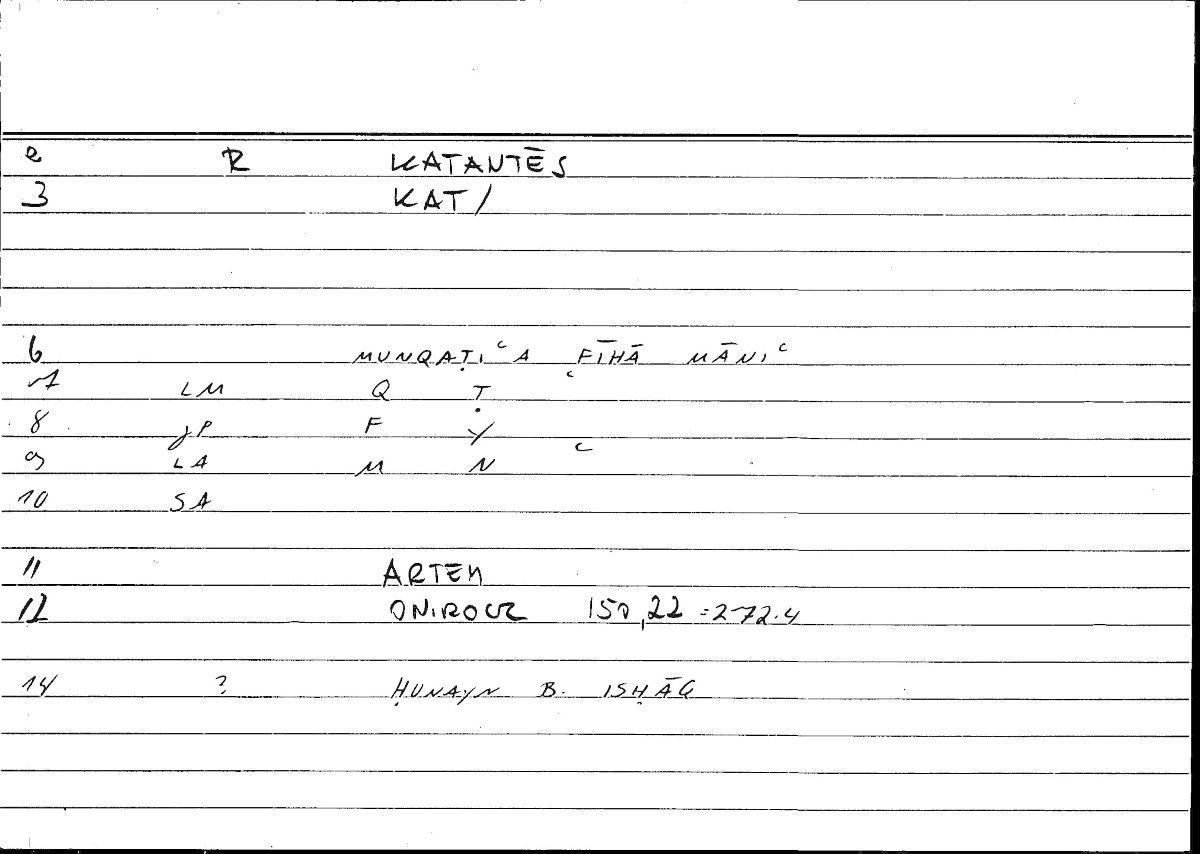 2 R KATANTĒS
3 KAT/
6 MUNQAṬIʿA FĪHĀ MĀNIʿ
7 LM Q Ṭ ʿ
8 JP F Y
9 LA M N ʿ
10 SA
11 ARTEM
12 ONIROCR 150,22 =272.4
14 ? ḤUNAYN B. ISḤĀQ